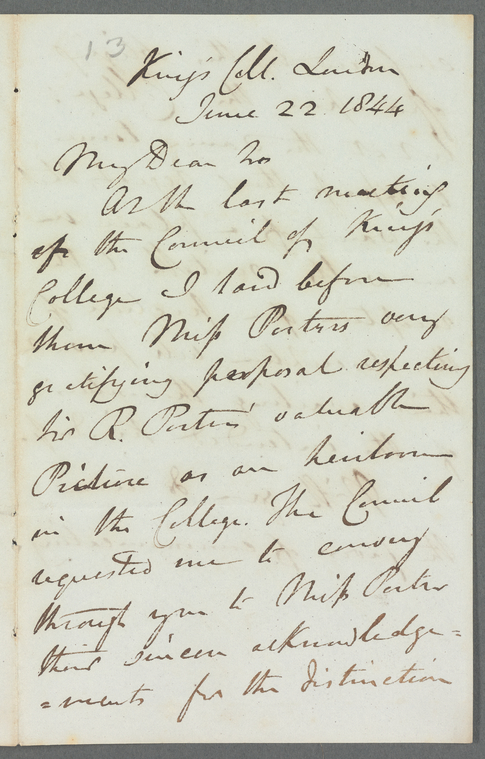 13
King's Coll. London
June 22 1844
My Dear Sir
At the last meeting
of the Council of King's
College I laid before
them Miss Porter's very
gratifying proposal respecting
Sir R. Porter's valuable
Picture as an heirloom
in the College. The Council
requested me to convey
through you to Miss Porter
their sincere acknowledge=
=ments for the distinction